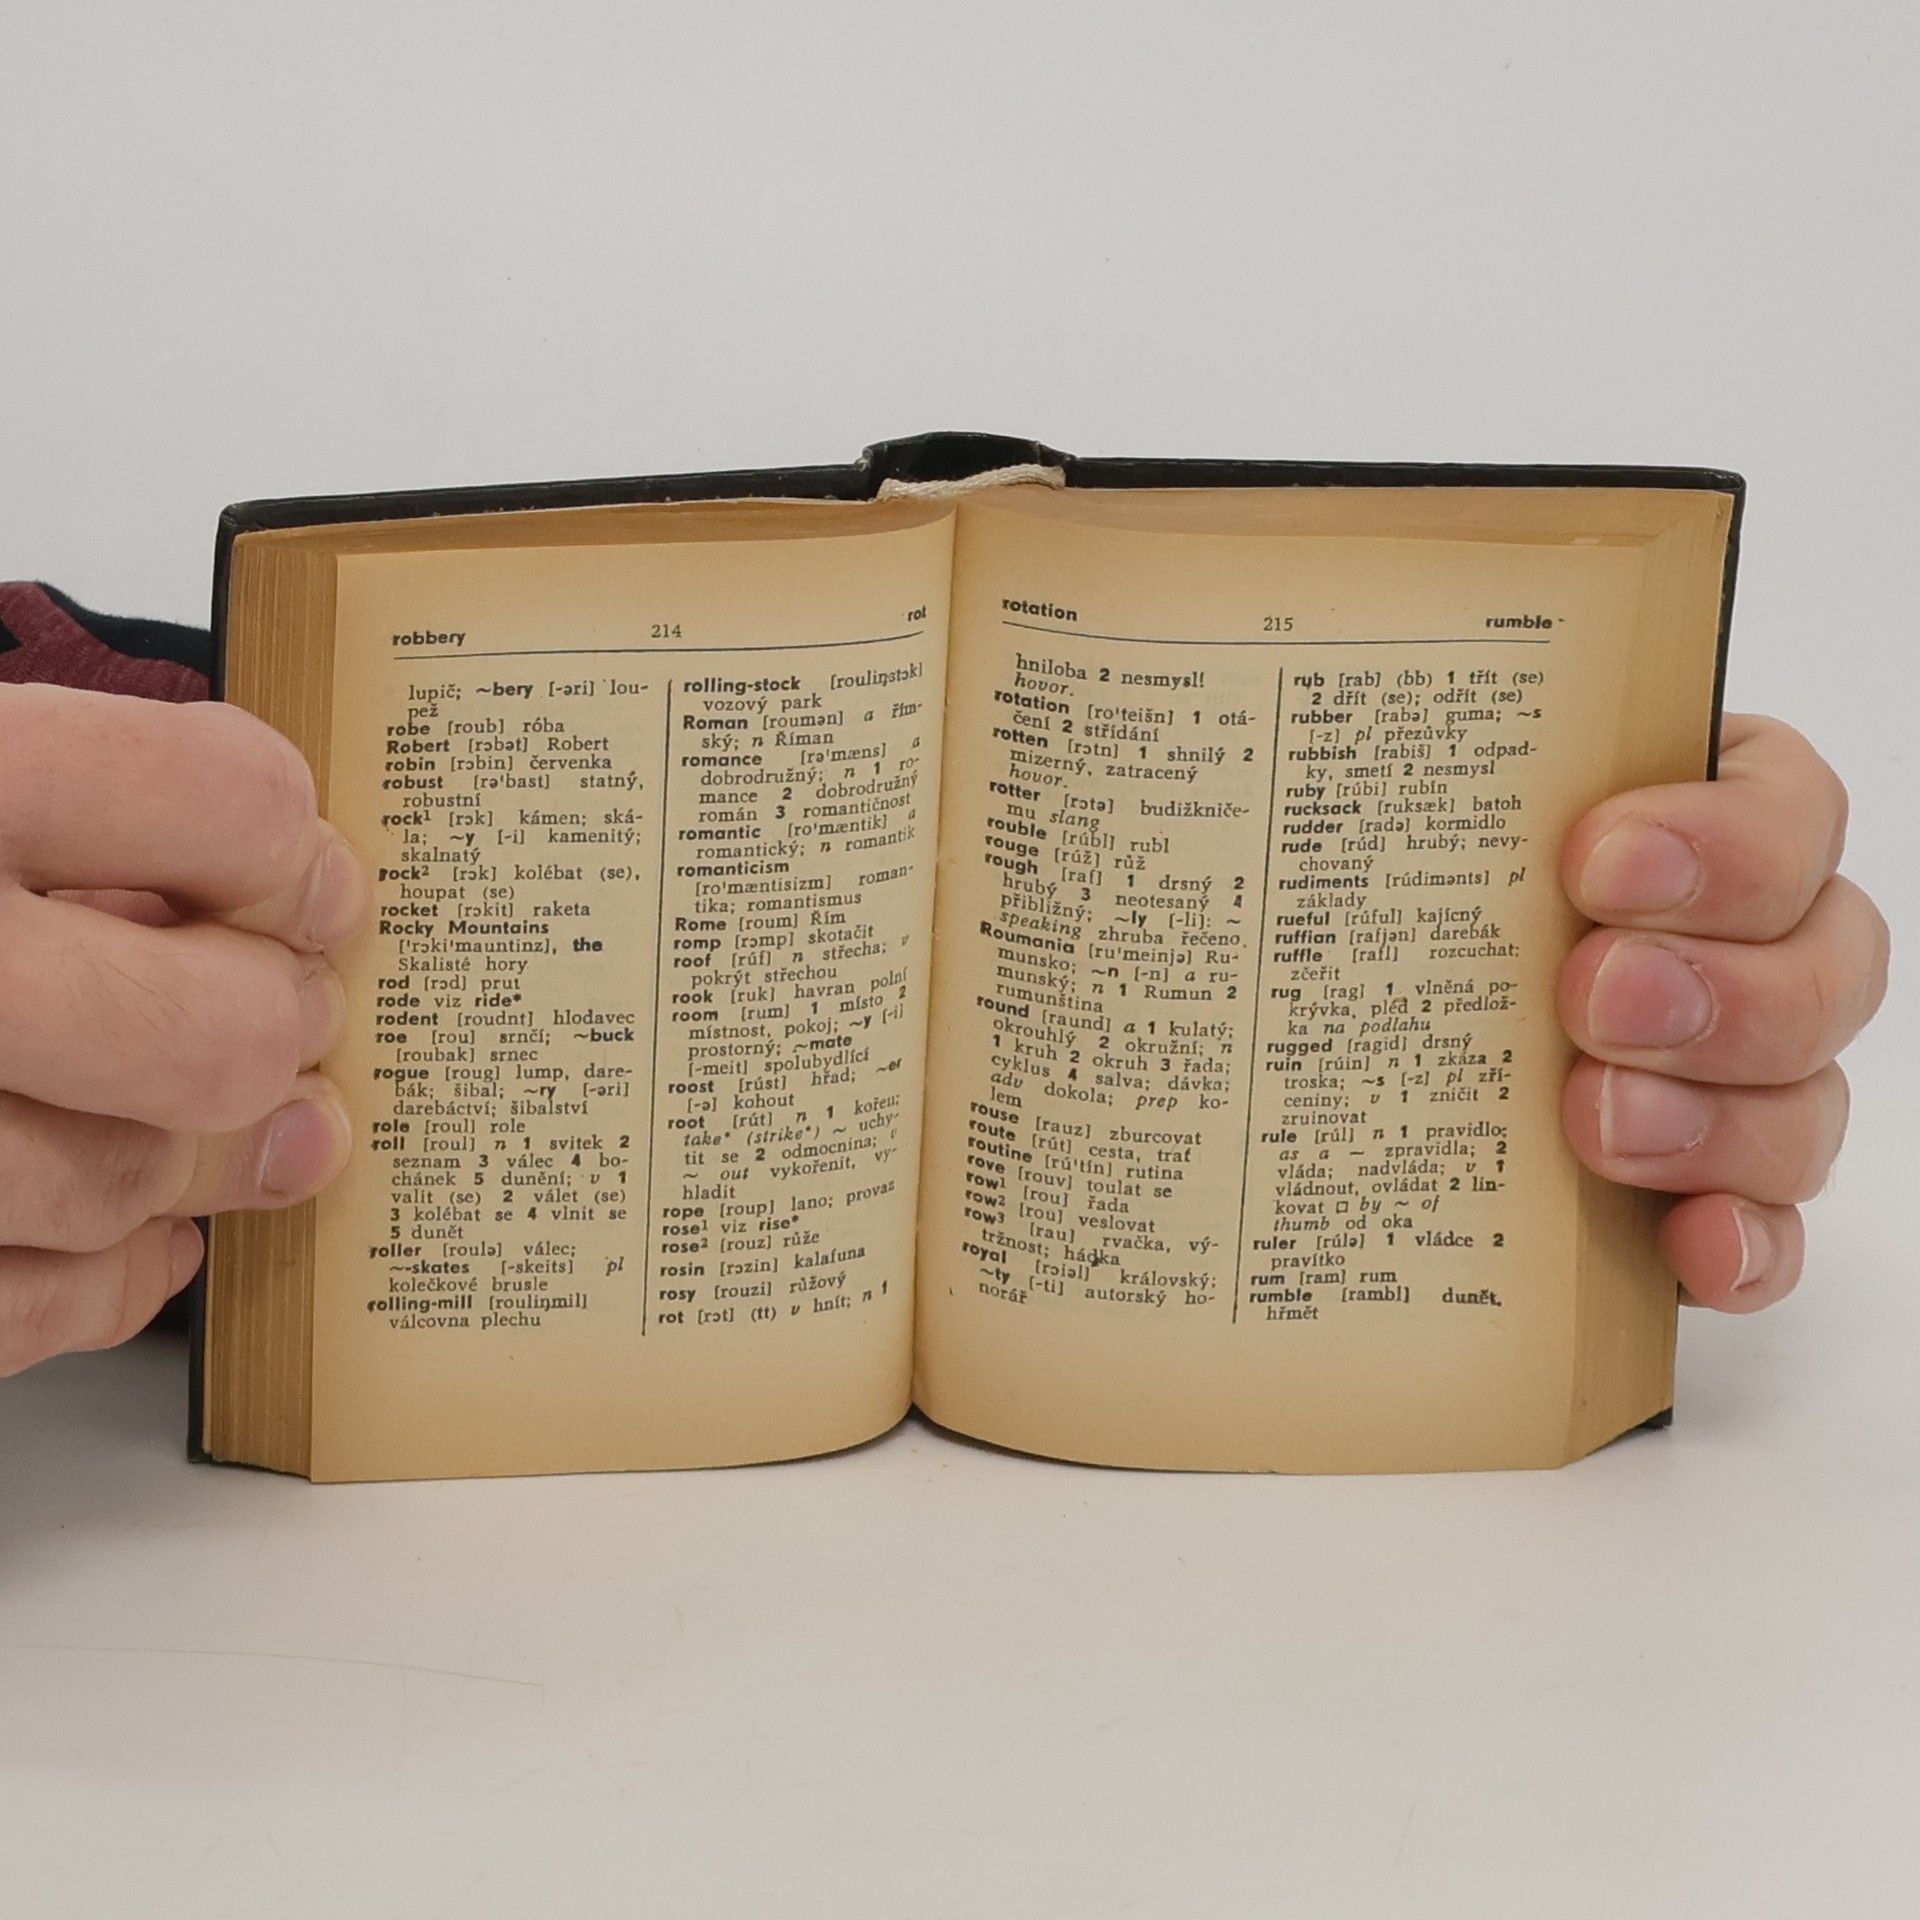 robbery 214 rot
lupič; ~bery [-əri] lou-
pež
robe [roub] róba
Robert [rɔbət] Robert
robin [rɔbin] červenka
robust [rə'bast] statný,
robustní
rock¹ [rɔk] kámen; ská-
la; ~y [-i] kamenitý;
skalnatý
rock² [rɔk] kolébat (se),
houpat (se)
rocket [rɔkit] raketa
Rocky Mountains
['rɔki'mauntinz], the
Skalisté hory
rod [rɔd] prut
rode viz ride*
rodent [roudnt] hlodavec
roe [rou] srnčí; ~buck
[roubak] srnec
rogue [roug] lump, dare-
bák; šibal; ~ry [-əri]
darebáctví; šibalství
role [roul] role
roll [roul] n 1 svitek 2
seznam 3 válec 4 bo-
chánek 5 dunění; v 1
valit (se) 2 válet (se)
3 kolébat se 4 vlnit se
5 dunět
roller [roulə] válec;
~-skates [-skeits] pl
kolečkové brusle
rolling-mill [rouliŋmil]
válcovna plechu
rolling-stock [rouliŋstɔk]
vozový park
Roman [roumən] a řím-
ský; n Říman
romance [rə'mæns] a
dobrodružný; n 1 ro-
mance 2 dobrodružný
román 3 romantičnost
romantic [ro'mæntik] a
romantický; n romantik
romanticism
[ro'mæntisizm] roman-
tika; romantismus
Rome [roum] Řím
romp [rɔmp] skotačit
roof [rúf] n střecha; v
pokrýt střechou
rook [ruk] havran polní
room [rum] 1 místo 2
místnost, pokoj; ~y [-i]
prostorný; ~mate
[-meit] spolubydlící
roost [rúst] hřad; ~er
[-ə] kohout
root [rút] n 1 kořen;
take* (strike*) ~ uchy-
tit se 2 odmocnina; v
~ out vykořenit, vy-
hladit
rope [roup] lano; provaz
rose¹ viz rise*
rose² [rouz] růže
rosin [rɔzin] kalafuna
rosy [rouzi] růžový
rot [rɔt] (tt) v hnít; n 1
rotation 215 rumble
hniloba 2 nesmysl!
hovor.
rotation [ro'teišn] 1 otá-
čení 2 střídání
rotten [rɔtn] 1 shnilý 2
mizerný, zatracený
hovor.
rotter [rɔtə] budižkniče-
mu slang
rouble [rúbl] rubl
rouge [rúž] růž
rough [raf] 1 drsný 2
hrubý 3 neotesaný 4
přibližný; ~ly [-li]: ~
speaking zhruba řečeno.
Roumania [ru'meinjə] Ru-
munsko; ~n [-n] a ru-
munský; n 1 Rumun 2
rumunština
round [raund] a 1 kulatý;
okrouhlý 2 okružní; n
1 kruh 2 okruh 3 řada;
cyklus 4 salva; dávka;
adv dokola; prep ko-
lem
rouse [rauz] zburcovat
route [rút] cesta, trať
routine [rú'tín] rutina
rove [rouv] toulat se
row¹ [rou] řada
row² [rou] veslovat
row³ [rau] rvačka, vý-
tržnost; hádka
royal [rɔiəl] královský;
~ty [-ti] autorský ho-
norář
rub [rab] (bb) 1 třít (se)
2 dřít (se); odřít (se)
rubber [rabə] guma; ~s
[-z] pl přezůvky
rubbish [rabiš] 1 odpad-
ky, smetí 2 nesmysl
ruby [rúbi] rubín
rucksack [ruksæk] batoh
rudder [radə] kormidlo
rude [rúd] hrubý; nevy-
chovaný
rudiments [rúdimənts] pl
základy
rueful [rúful] kajícný
ruffian [rafjən] darebák
ruffle [rafl] rozcuchat;
zčeřit
rug [rag] 1 vlněná po-
krývka, pléd 2 předlož-
ka na podlahu
rugged [ragid] drsný
ruin [rúin] n 1 zkáza 2
troska; ~s [-z] pl zří-
ceniny; v 1 zničit 2
zruinovat
rule [rúl] n 1 pravidlo;
as a ~ zpravidla; 2
vláda; nadvláda; v 1
vládnout, ovládat 2 lin-
kovat □ by ~ of
thumb od oka
ruler [rúlə] 1 vládce 2
pravítko
rum [ram] rum
rumble [rambl] dunět,
hřmět